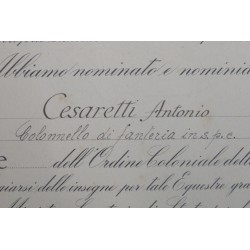 Abbiamo nominato e nominia
Cesaretti Antonio
Colonnello di fanteria in s.p.e.
e dell'Ordine Coloniale dell
giarsi delle insegne per tale Equestre gra